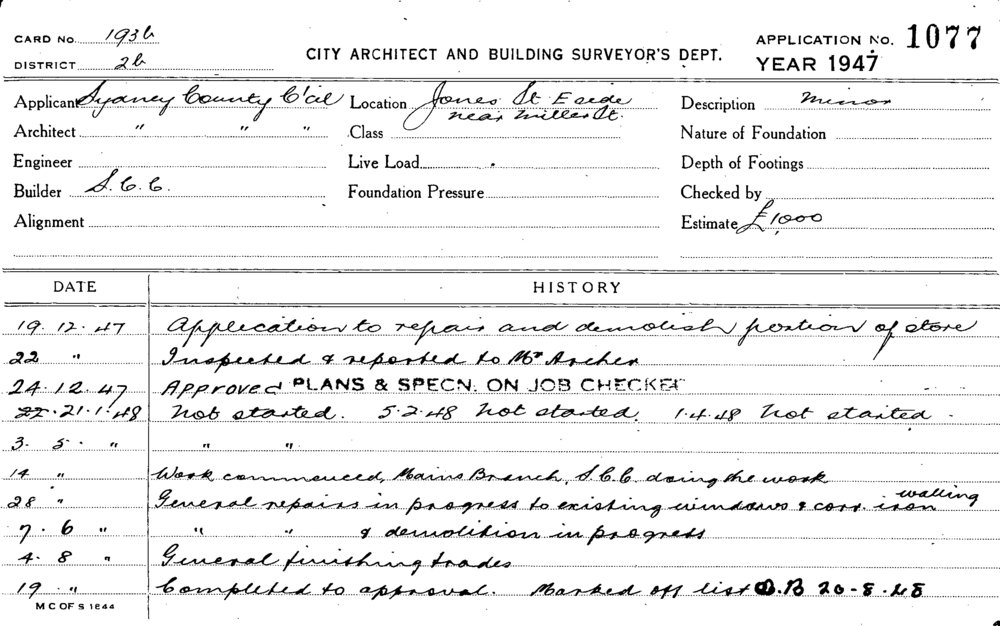 CARD No. 193b
DISTRICT 2b
CITY ARCHITECT AND BUILDING SURVEYOR'S DEPT.
APPLICATION No. 1077
YEAR 1947
Applicant Sydney County C'cil Location Jones St E side near Miller St. Description Minor
Architect " " " Class Nature of Foundation
Engineer Live Load Depth of Footings
Builder S.C.C. Foundation Pressure Checked by
Alignment Estimate £1000
DATE HISTORY
19.12.47 Application to repair and demolish portion of store
22 " Inspected & reported to Mr Archer
24.12.47 Approved PLANS & SPECN. ON JOB CHECKED
22. 21.1.48 Not started. 5.2.48 Not started. 1.4.48 Not started.
3. 5. " " "
14 " Work commenced, Mains Branch, S.C.C. doing the work
28 " General repairs in progress to existing windows & corr. iron walling
7. 6 " " " & demolition in progress
4. 8 " General finishing trades
19 " Completed to approval. Marked off list O.B 20-8.48
M C OF S 1844